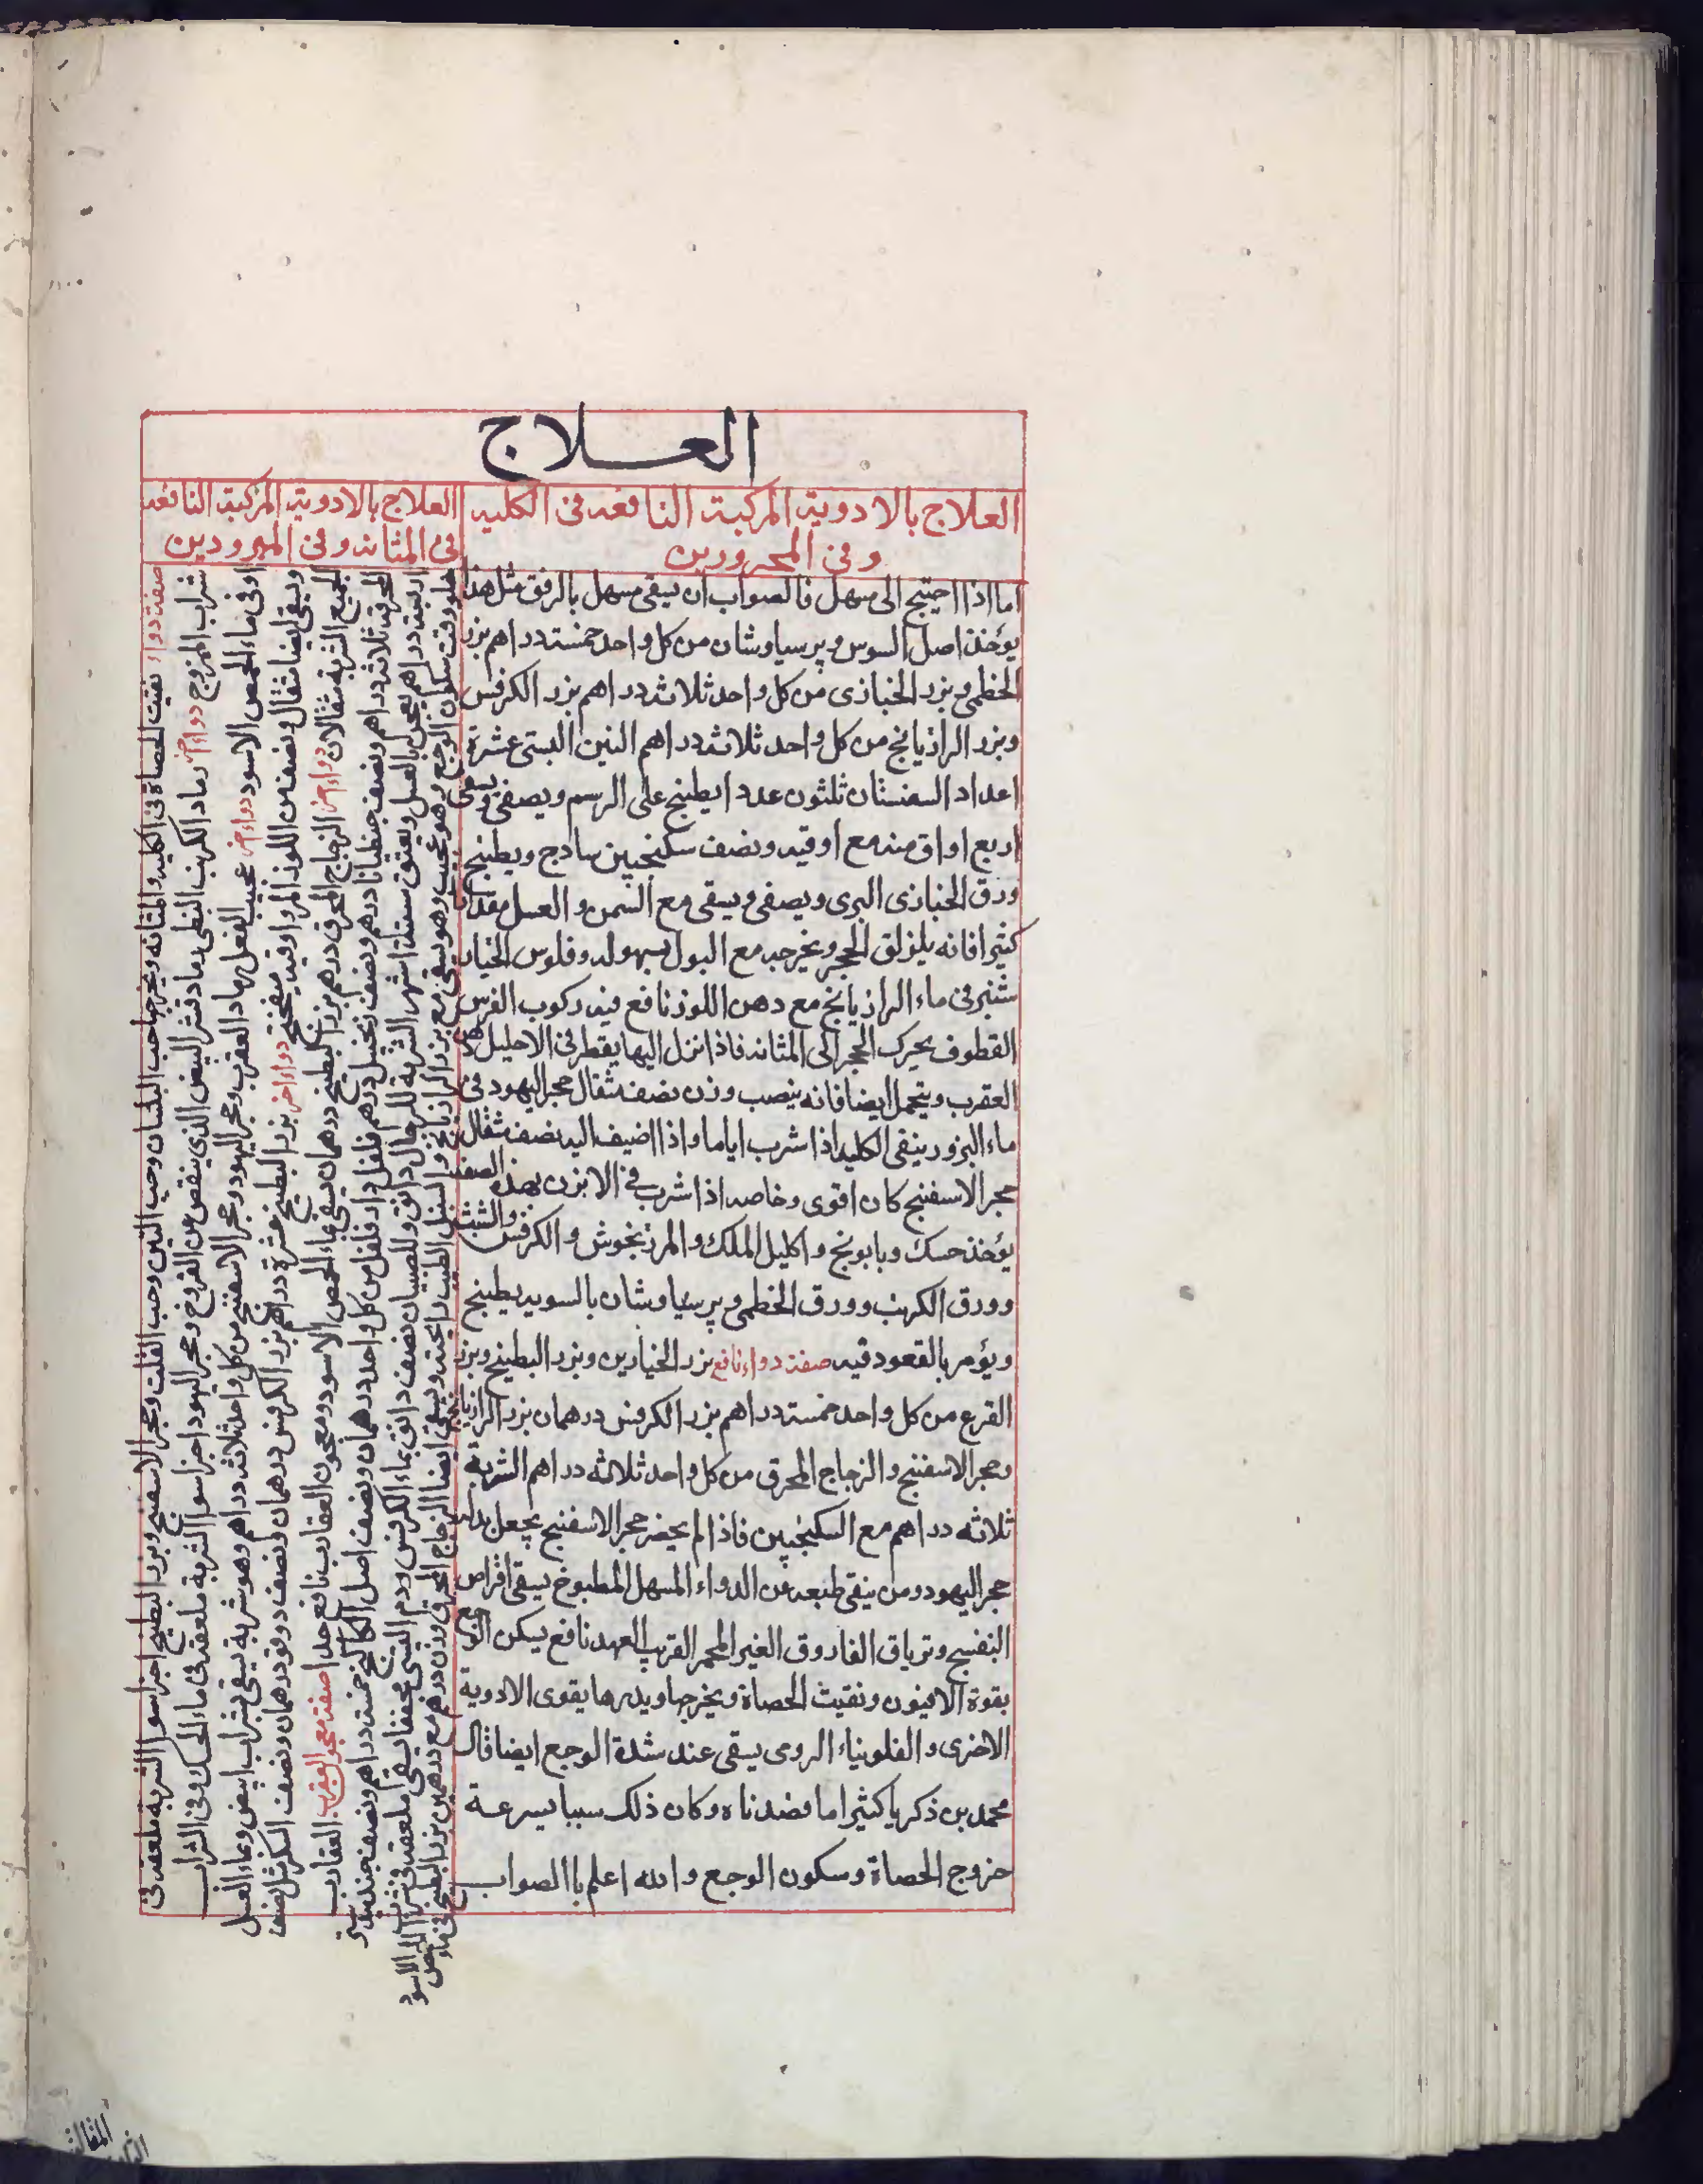 العلاج
العلاج بالادوية المركبة النافعه فى الكليه
وفى المحرورين
العلاج بالادوية المركبة النافعه
فى المثانه وفى المبرودين
اما اذا احتيج الى مسهل فالصواب ان يسقى مسهل بالرفق مثل هذا
يؤخذ اصل السوس وپرسياوشان من كل واحد خمسة دراهم بزر
الخطمى وبزر الخبازى من كل واحد ثلاثه دراهم بزر الكرفس
وبزر الرازيانج من كل واحد ثلاثه دراهم التين البستى عشرة
اعداد السفستان ثلثون عددا يطبخ على الرسم ويصفى ويسقى
اربع اواق منه مع اوقيه ونصف سكنجبين ساذج ويطبخ
ورق الخبازى البرى ويصفى ويسقى مع السمن والعسل مقدارا
كثيرا فانه يلزلق الحجر ويخرجه مع البول بسهوله وفلوس الخيار
شنبر فى ماء الرازيانج مع دهن اللوز نافع فيه ركوب الفرس
القطوف يحرك الحجر الى المثانه فاذا نزل اليها يقطر فى الاحليل دهن
العقرب ويتحمل ايضا فانه ينصب وزن نصف مثقال حجر اليهود فى
ماء البزور ينقى الكليه اذا شرب اياما واذا اضيف اليه نصف مثقال
حجر الاسفنج كان اقوى وخاصه اذا شرب فى الابزن بهذه الصفه
يؤخذ حسك وبابونج واكليل الملك والمرزنجوش والكرفس والشبث
وورق الكرنب وورق الخطمى وپرسياوشان بالسويه يطبخ
ويؤمر بالقعود فيه صفة دواء نافع بزر الخيارين وبزر البطيخ وبزر
القرع من كل واحد خمسة دراهم بزر الكرفس درهمان بزر الرازيانج
وحجر الاسفنج والزجاج المحرق من كل واحد ثلاثه دراهم الشربة
ثلاثه دراهم مع السكنجبين فاذا لم يحضر حجر الاسفنج يجعل بدله
حجر اليهود ومن ينقى طبعه من الدواء المسهل المطبوخ يسقى اقراص
البنفسج وترياق الفاروق الغير المخمر القريب العهد نافع يسكن الوجع
بقوة الافيون ونفيت الحصاة ويخرجها ويدرها بقوى الادوية
الاخرى والفلونياء الرومى يسقى عند شدة الوجع ايضا قال
محمد بن زكريا كثيرا ما فصدناه وكان ذلك سببا بسرعة
خروج الحصاة وسكون الوجع والله اعلم باالصواب
صفة دواء نفيت الحصاة فى الكليه والمثانه ويخرجها حب البلسان وحب التين وحب القلت وحجر الاسفنج وبزر البطيخ اجزا سوا الشربة ملعقه فى
شراب الممزوج دواء اخر رماد الكرنب النبطى رماد قشر البيض الذى ينقص عن الفروخ وحجر اليهود اجزا سوا الشربة ملعقه فى ماء الحسك وفى الشراب
او فى ماء الحمص الاسود دواء اخر عجيب الفعل رماد العقرب وحجر اليهود وحجر الاسفنج من كل واحد ثلاثه دراهم وهو شربة يسقى بشراب ابيض وماء العسل
ويسقى ايضا مثقال ونصف من اللوز المر واوقيه ميفختج دواء اخر بزر البطيخ عشرة دراهم بزر الكرفس درهمان ونصف دوقو درهمان ونصف السكر مثل نصف
الجميع الشربة مثقالان دواء اخر الزجاج المحرق درهم بزر البطيخ درهمان يسقى بماء الحمص الاسود ومعجون العقارب نافع جدا صفة معجون العقرب العقارب
المحرقه ثلاثه دراهم ونصف جنطيانا درهم ونصف زنجبيل درهم فلفل دار فلفل من كل واحد درهمان ونصف اصل الكاكنج خمسة دراهم ونصف جندبيدستر
اربعة دراهم يعجن بالعسل ويعتق ستة اشهر الشربة للرجال دانق وللصبيان نصف دانق بماء الكرفس ودم التيس مجففا يسقى ملعقه فى شراب
حلو وقت سكون الوجع وهو عجيب وهو يسقى مع بزر الرازيانج والسنبل الطيب رائحته ويسقى ايضا الزجاج المحرق وزن درهم مع درهمين بزر البطيخ فى ماء
الحمص الاسود
المقالة